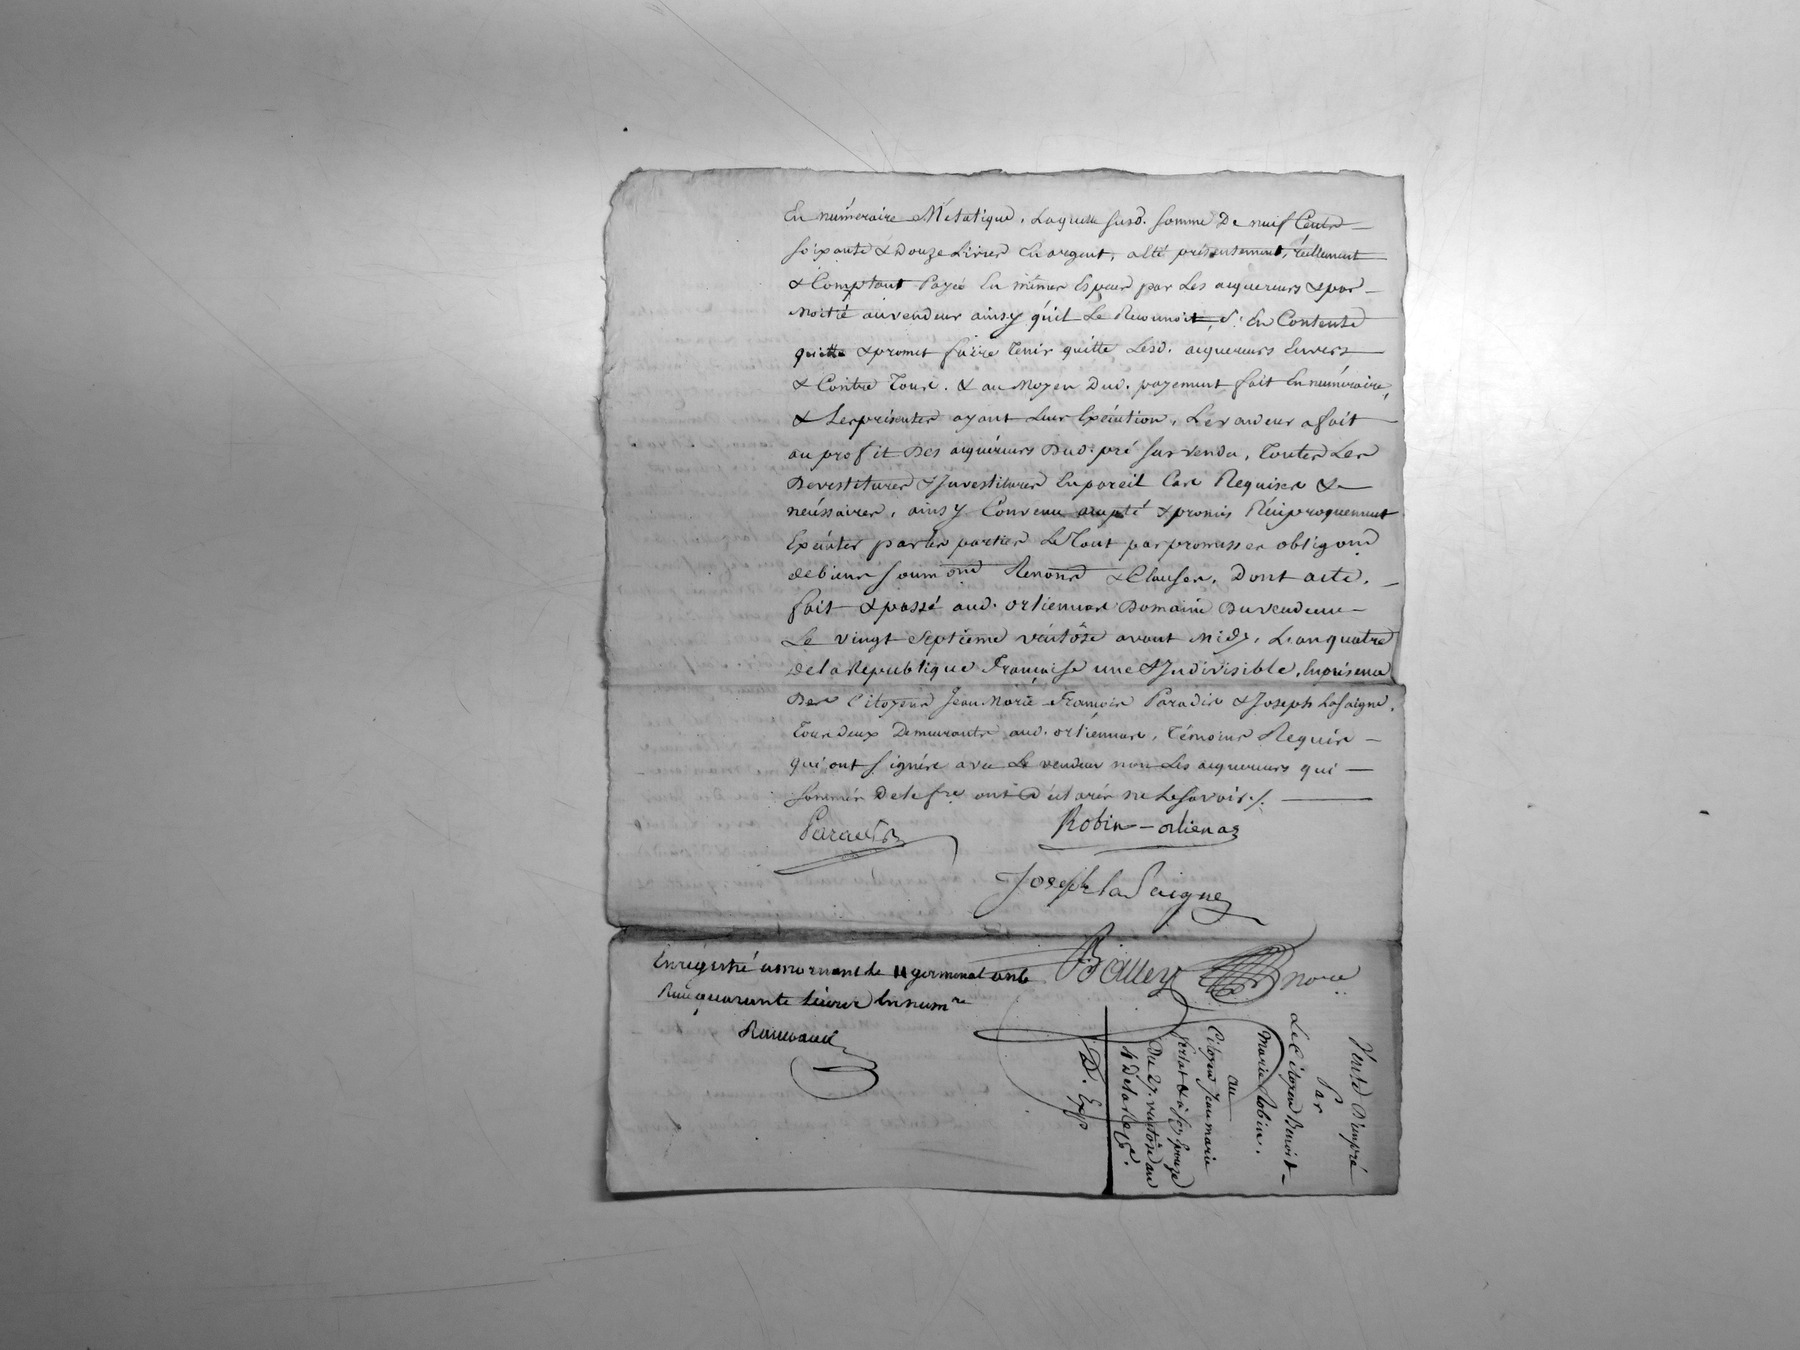 En numéraire Métalique, Laquelle susd. somme De neuf Cents
soixante & Douze Livres En argent, a été présentement, réellement
& Comptant Payée En mêmes Espèces par Les aiquereurs & par
Moitié au vendeur ainsy qu'il Le Reconnoit, S'En Contente
quitte & promet faire Tenir quitte Lesd. aiquereurs Envers
& Contre Tous. & au Moyen Dud. payement fait En numéraire,
& Les présentes ayant Leur Exécution, Le vendeur a fait
au profit Des aiquéreurs Dud. pré sus vendu, Toutes Les
Devestitures & Investitures En pareil Cas Requises &
nécessaires, ainsy Convenu accepté & promis Réciproquement
Exécuter par les parties Le Tout par promesses obligons
de biens soumons Renons & Clauses, Dont acte,
fait & passé aud. ortiennas Domaine Du vendeur
Le vingt Septième ventôse avant Midy, L'an quatre
de la Republique Française une & Indivisible, En présence
Des Citoyens Jean Marie François Paradis & Joseph Lasaigne,
Tous Deux Demeurants aud. ortiennas, Témoins Requis
qui ont signés avec Le vendeur non Les aiquereurs qui
sommés De le fre ont Déclarés ne Le savoir ./.
Paradis
Robin-ortienas
Joseph la Saigne
Balley
nore
Enregistré a mornant le 11 germinal an 4
Reçu quarante Livres En numre
Vente D'un pré
Par
Le Citoyen Benoit
Marie Robin.
au
Citoyen Jean marie
& à son Epouse
Du 27. ventôse an
4 De la Rep.
D. Exp